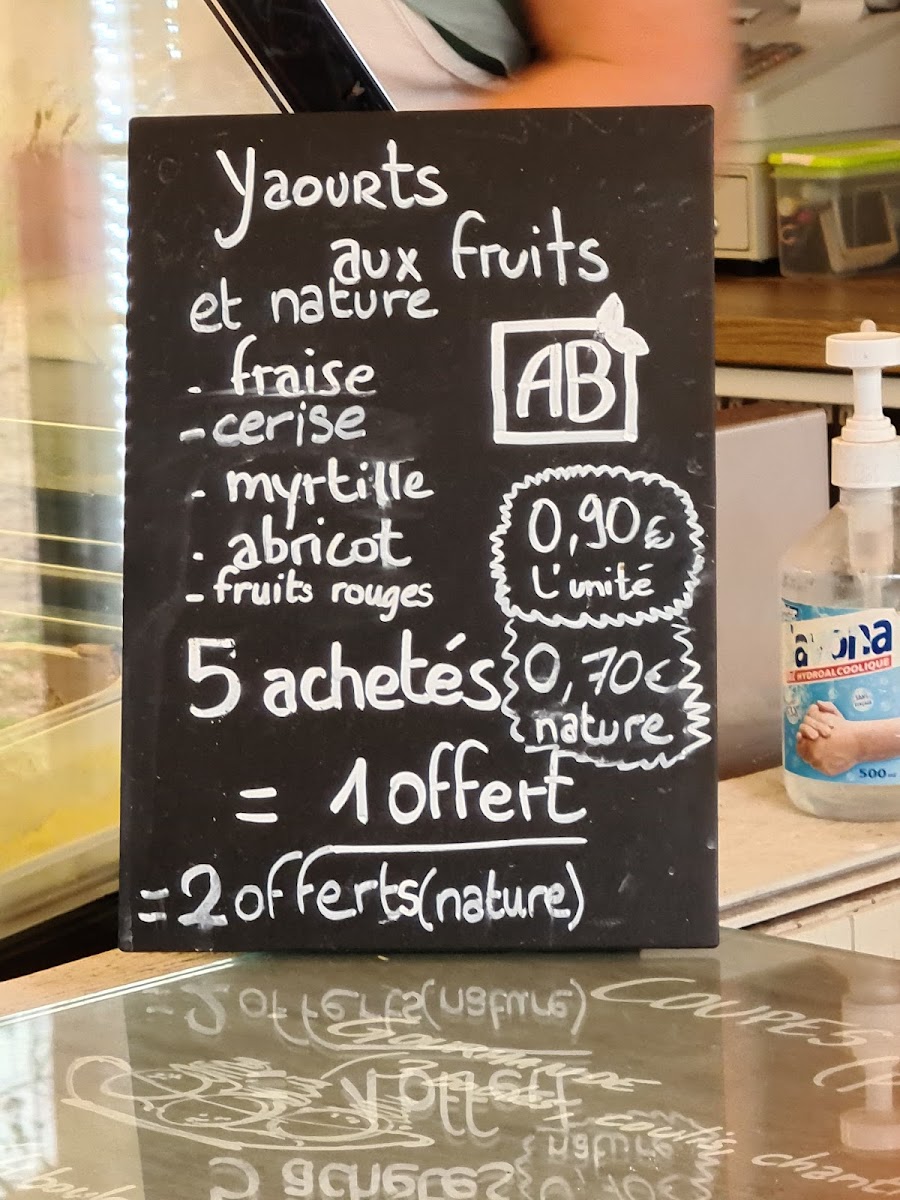 Yaourts
aux fruits
et nature
- fraise
- cerise
- myrtille
- abricot
- fruits rouges
AB
0,90€
L'unité
0,70€
nature
5 achetés
= 1 offert
= 2 offerts (nature)
HYDROALCOOLIQUE
500 ml
COUPES